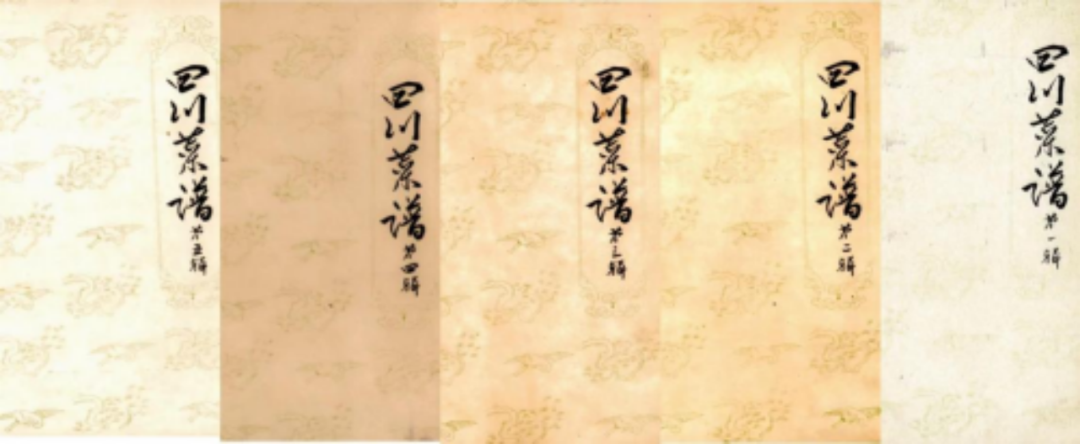 四川菜谱 第一辑
四川菜谱 第二辑
四川菜谱 第三辑
四川菜谱 第四辑
四川菜谱 第五辑